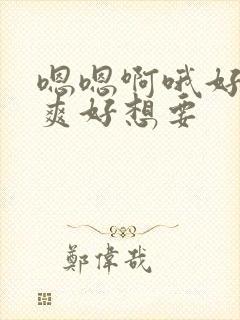 嗯嗯啊哦好
爽好想要
鄭偉哉